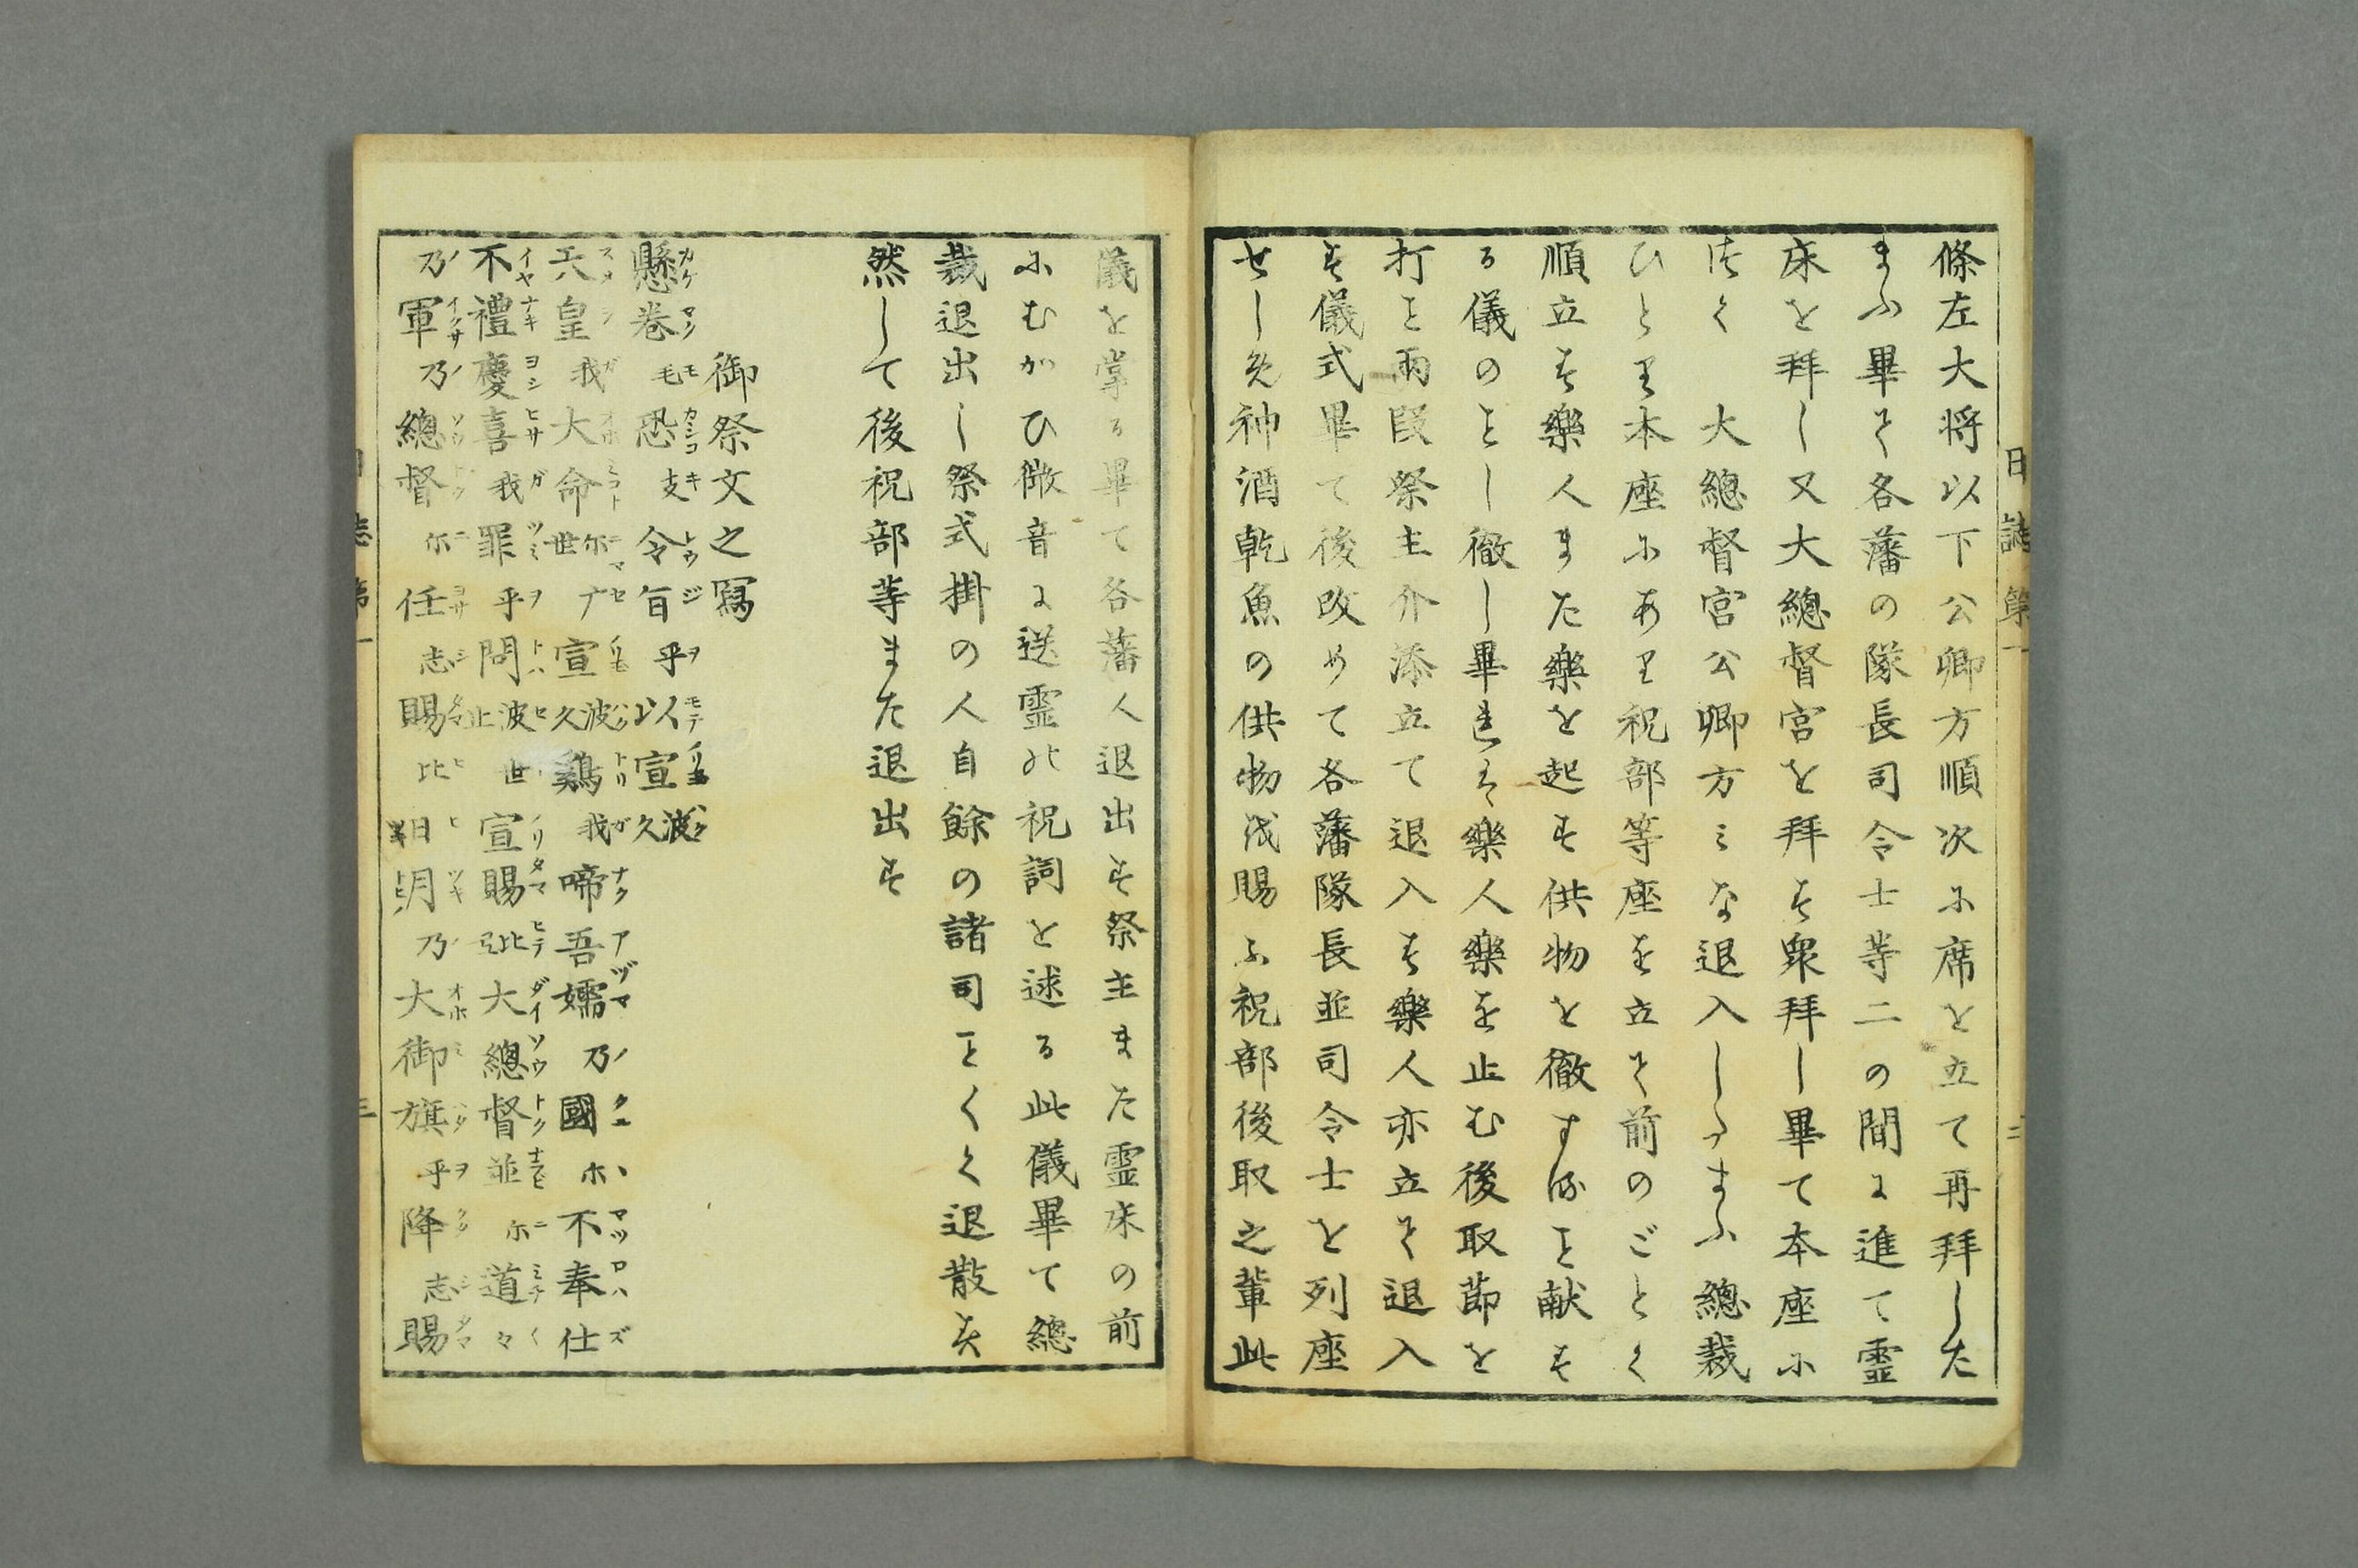 條左大将以下公卿方順次に席を立て再拜した
まふ畢て各藩の隊長司令士等二の間に進て靈
床を拜し又大總督宮を拜す衆拜し畢て本座に
つく　大總督宮公卿方みな退入したまふ總裁
ひとり本座にあり祝部等座を立て前のごとく
順立す樂人また樂を起す供物を徹するを献す
る儀のとし徹し畢れは樂人樂を止む後取節を
打を兩段祭主介添立て退入す樂人亦立て退入
す儀式畢て後改めて各藩隊長並司令士を列座
せしめ神酒乾魚の供物を賜ふ祝部後取之輩此
日誌第一　二
儀を掌る畢て各藩人退出す祭主また靈床の前
にむかひ微音に送靈の祝詞を逑る此儀畢て總
裁退出し祭式掛の人自餘の諸司こと〱く退散す
然して後祝部等また退出す
御祭文之寫
懸卷毛恐支令旨乎以宣波久
天皇我大命尓世广宣波久鷄我啼吾嬬乃國尓不奉仕
不禮慶喜我罪乎問波世止宣賜比弖大總督並尓道々
乃軍乃總督尓任志賜比日月乃大御旗乎降志賜
日誌第一　三